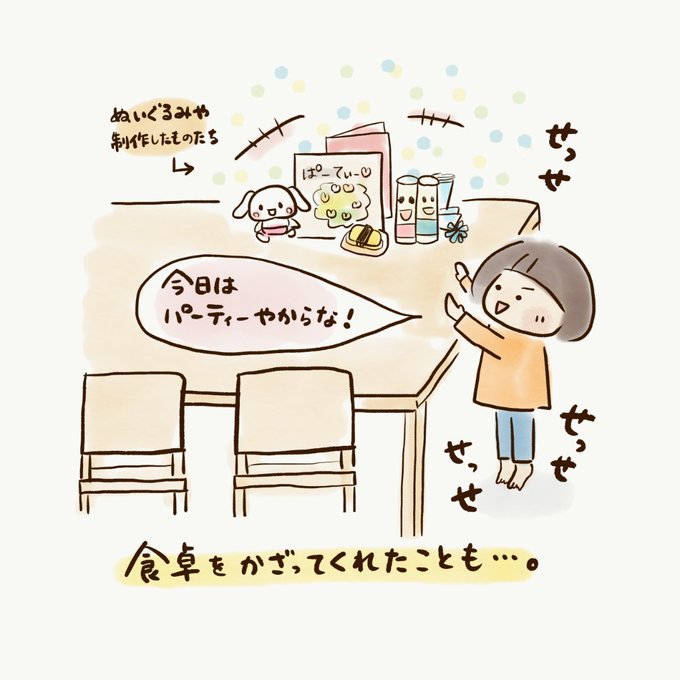 ぬいぐるみや
制作したものたち
せっせ
ぱーてぃー♡
今日は
パーティーやからな!
せっせ
せっせ
食卓をかざってくれたことも…。